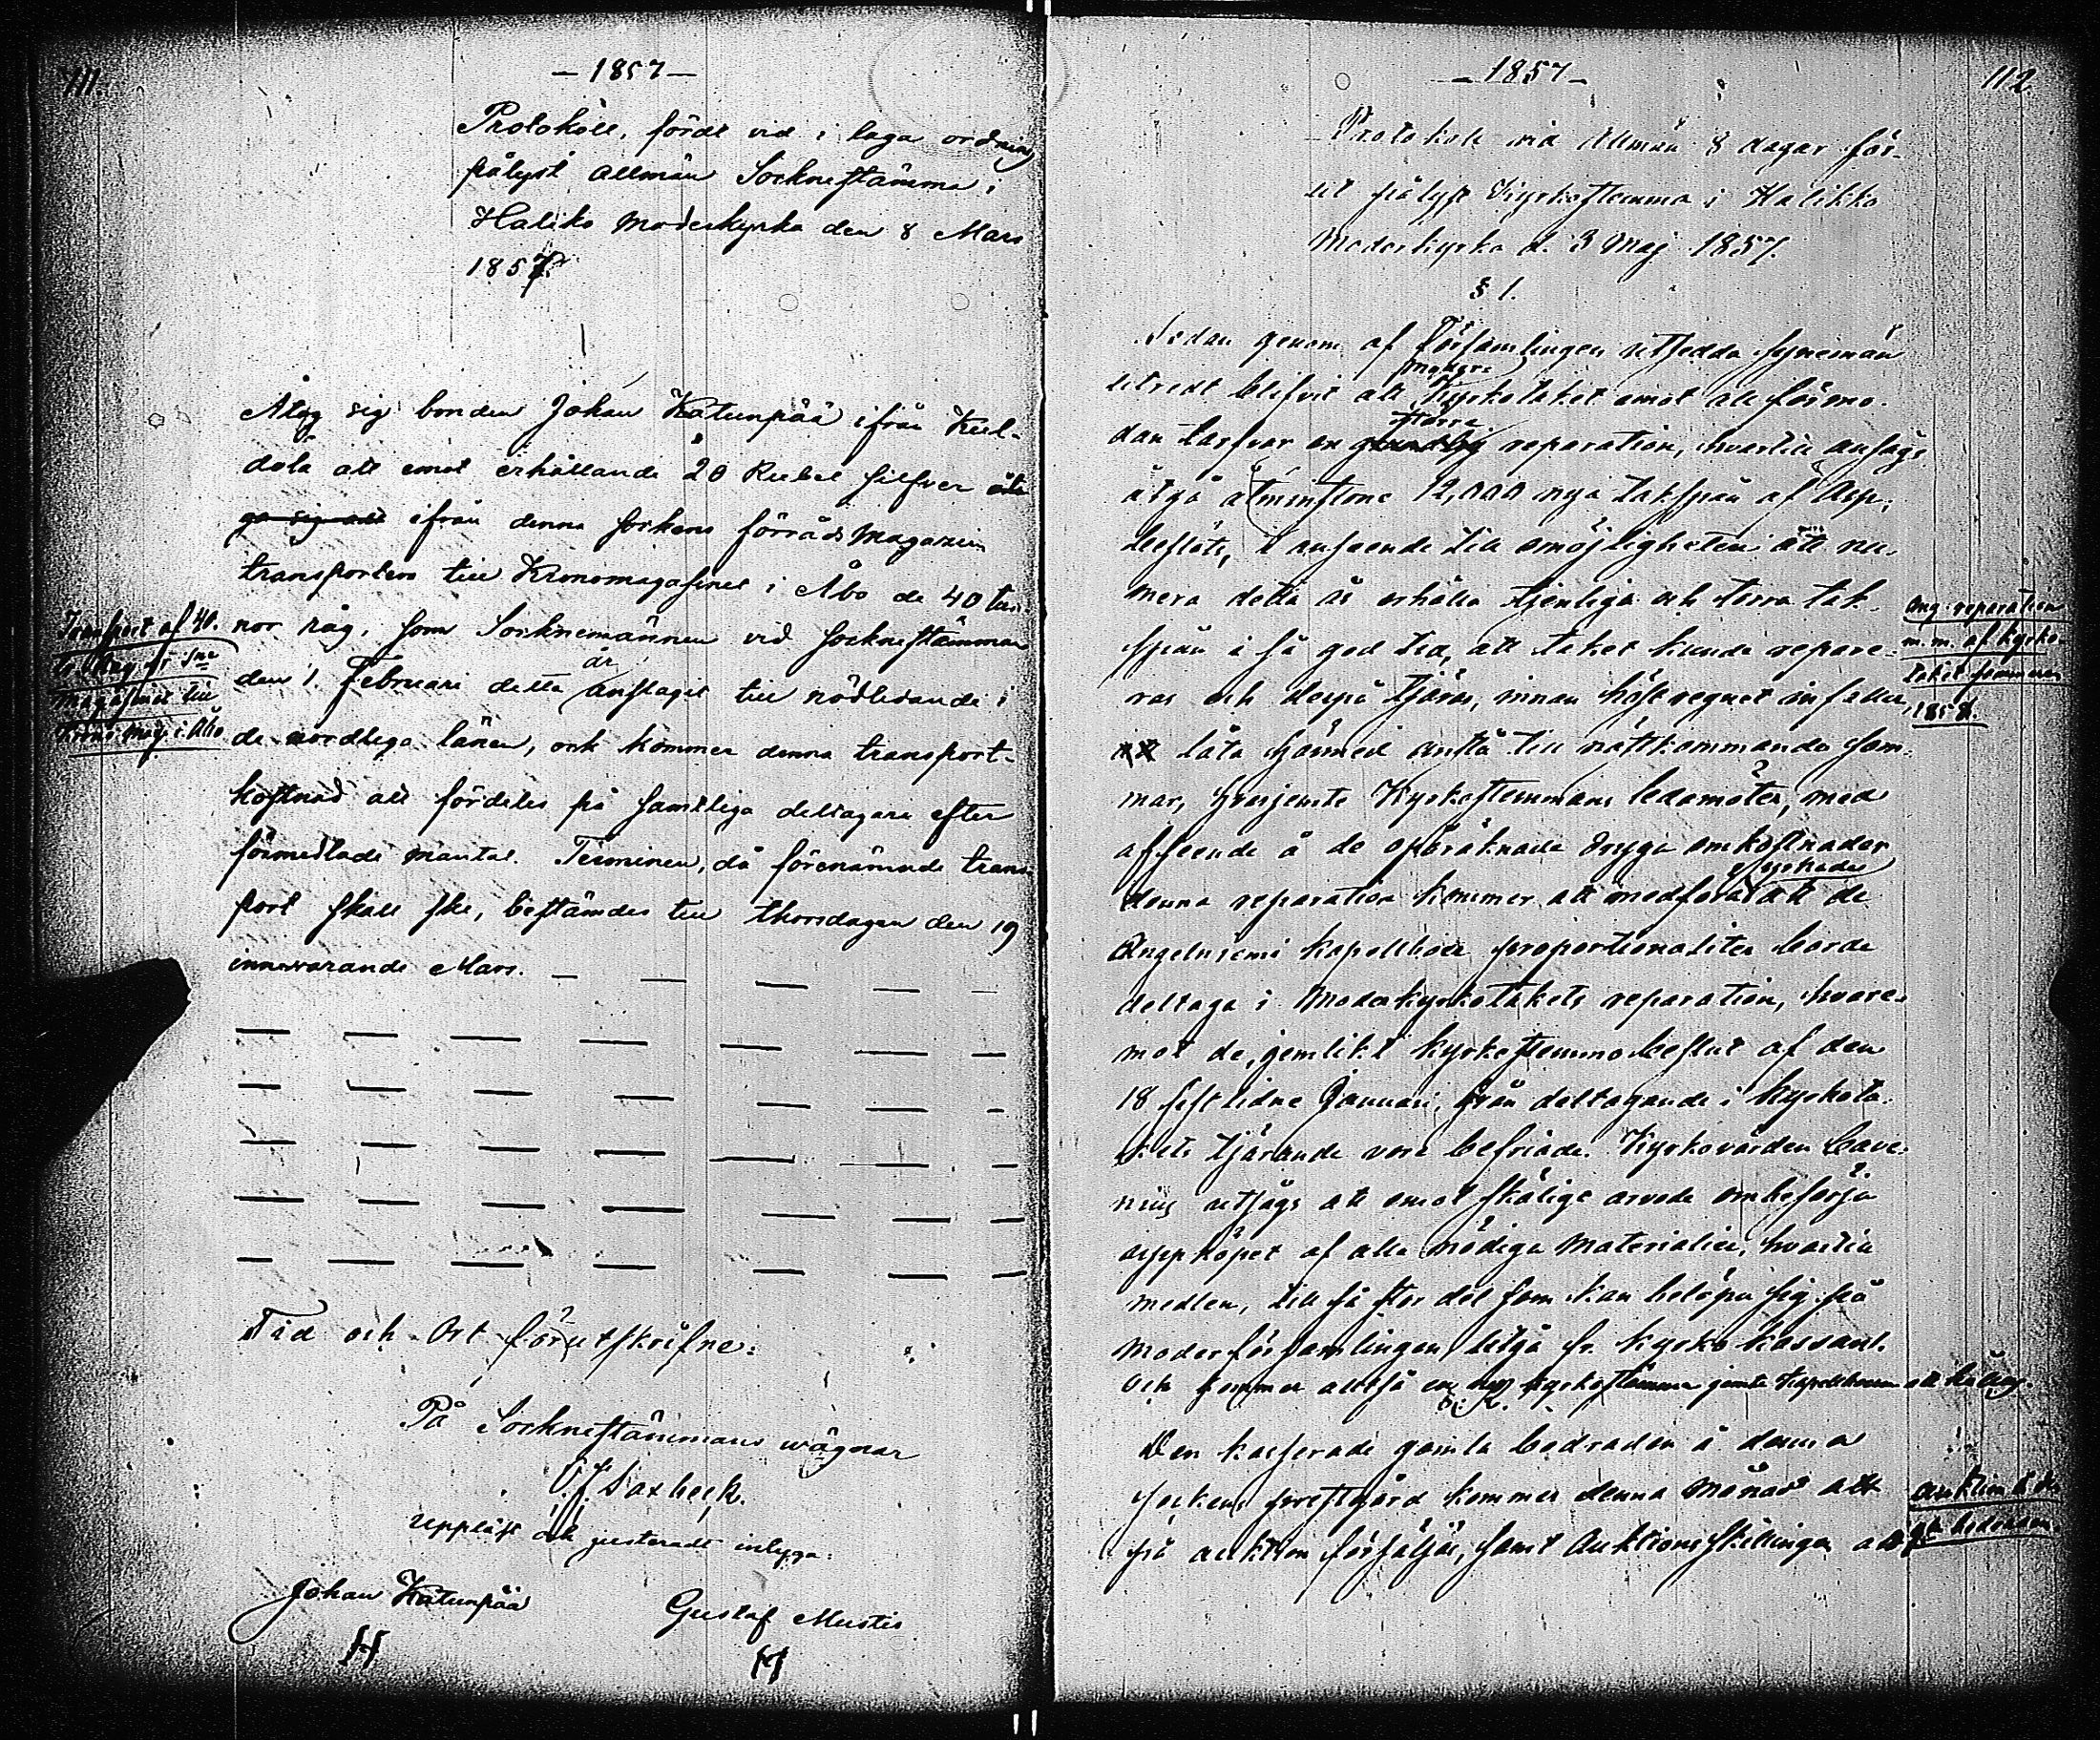 111.
— 1857 —
Protokoll, fördt vid i laga ordning
pålyst allmän Sockenstämma i
Haliko Moderkyrka den 8 Mars
1857.
Åtog sig bonden Johan Katunpää ifrån Kul-
dola att emot erhållande 20 Rubel silfver åta
ga sig att ifrån denna Sockens förråds Magazin
transportera till Kronomagasinet i Åbo de 40 tun-
nor råg, som Socknemännen vid Sockenstämman
den 1 Februari detta år anslagit till nödlidande i
de nordliga länen, och kommer denna transport-
kostnad att fördelas på samtliga deltagare efter
förmedlade mantal. Terminen, då förenämnde trans-
port skall ske, bestämdes till thorsdagen den 19
innevarande Mars.
Transport af 40.
Magasinet till
Krono Mag. i Åbo
Tid och Ort förutskrifne:
På Sockenstämmans wägnar
Uppläst och justeradt intyga:
Johan Katunpää
Gustaf Mustis
112.
— 1857 —
Protokoll vid Allmän 8 dagarför-
ut pålyst Kyrkostemma i Halikko
Moderkyrka d. 3 Maj 1857.
§ 1.
Sedan genom af Församlingen utsedda synemän
utredt blifvit att Moder Kyrkotaket emot all förmo-
dan tarfvar en grundlig större reparation, hvartill ansågs
åtgå åtminstone 12,000 nya takspån af Asp,
beslöts, i anseende till omöjligheten att nu-
mera detta år erhålla tjenliga och torra tak-
spån i så god tid, att taket kunde repare-
ras och derpå tjäras, innan höstregnet infaller,
låta härmed anstå till nästkommande som-
mar, hvarjemte Kyrkostemmans ledamöter, med
afseende å de oberäknade dryga omkostnader
denna reparation kommer att medföra att de
Angelniemi Kapellboer proportionaliter borde
deltaga i Moderkyrkotakets reparation, hvare-
mot de, jemlikt kyrkostemmobeslut af den
18 sistlidne Januari, från deltagande i Kyrkota-
kets tjärande vore befriade. Kyrkovärden Cave-
nius utsågs att emot skäligt arvode ombesörja
uppköpet af alla nödiga Materialier, hvartill
medlen, till så stor del som kan belöpa sig på
Moderförsamlingen, utgå fr. Kyrko kassan.
Och kommer alltså en ny kyrkostämma jemte Kapellboerne att hållas.
Den kasserade gamla bodraden å denna
Sockens prestgård kommer denna Månad att
på auktion försäljas, samt Auktionsskillingen
Ang. reparation
m. m. af Kyrko-
taket sommaren
1858.